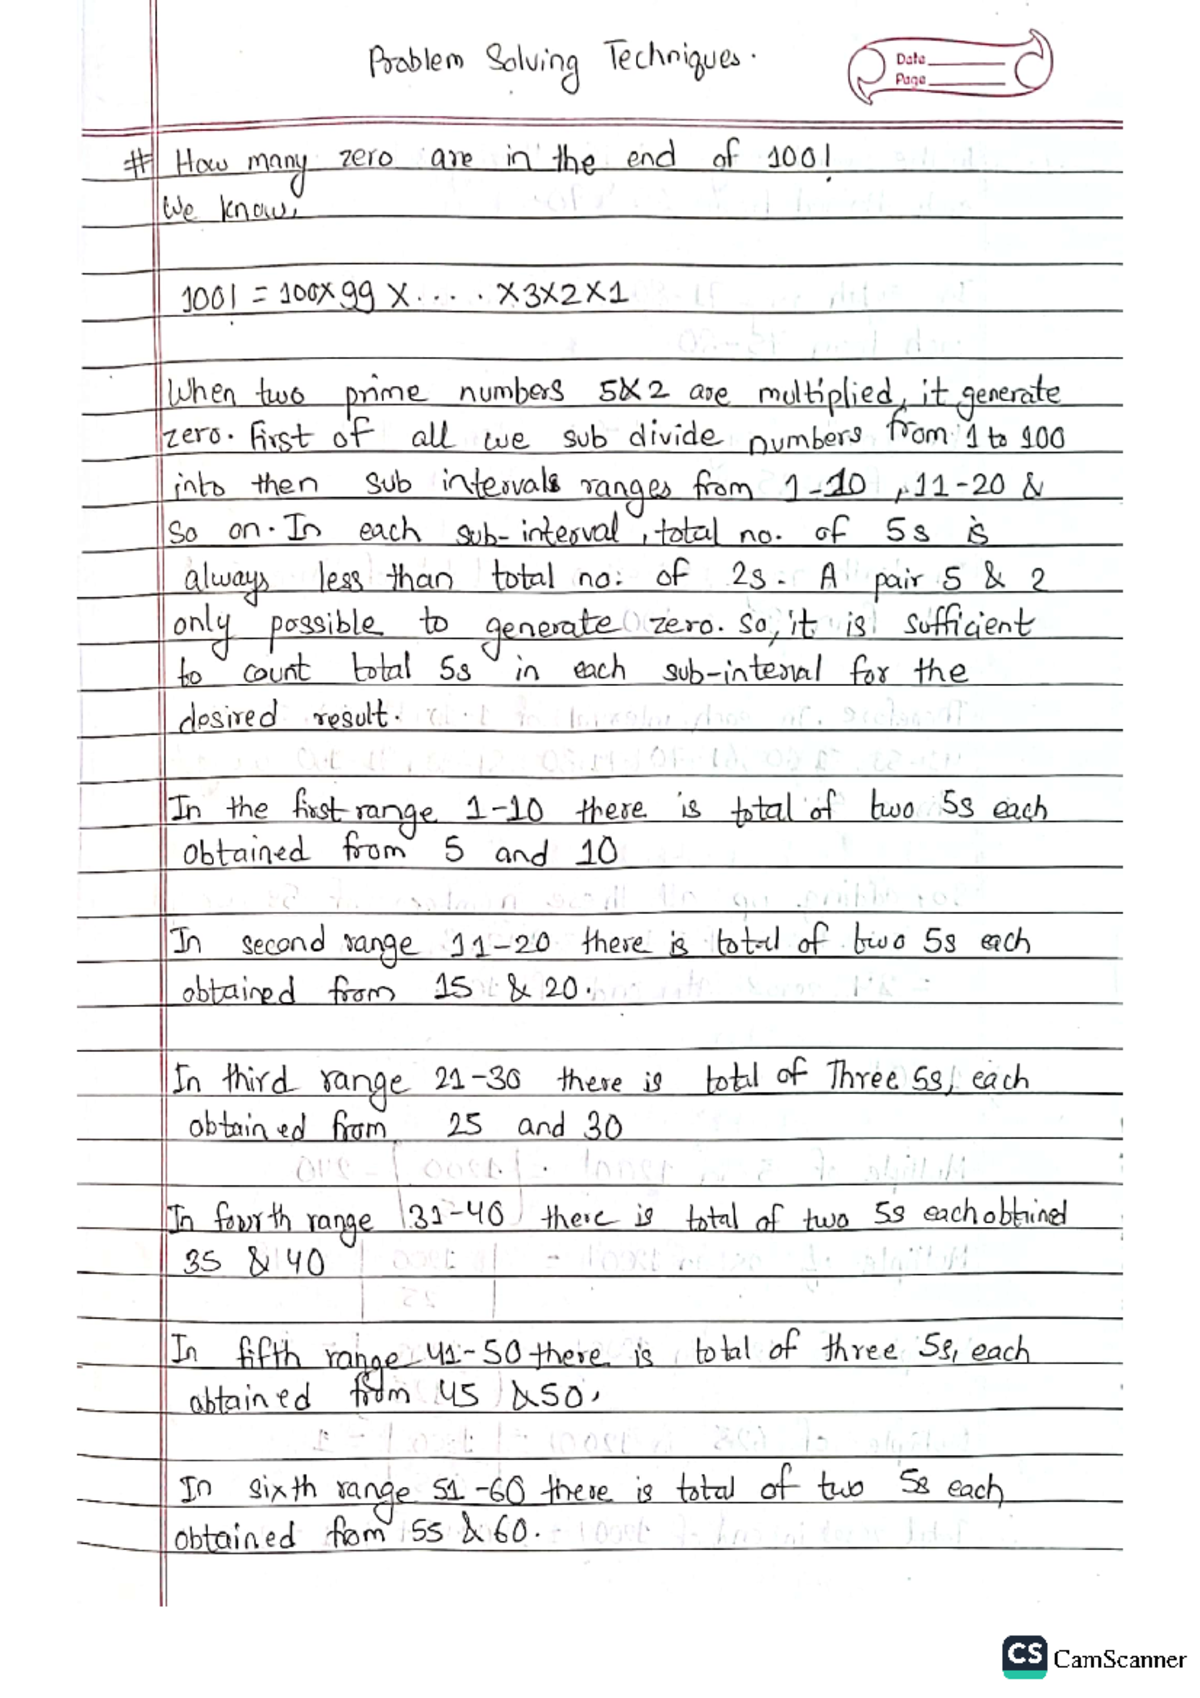 Problem Solving Techniques.
Date
Page
# How many zero are in the end of 100!
We know,
100! = 100×99 × .... ×3×2×1
When two prime numbers 5×2 are multiplied, it generate
zero. First of all we sub divide numbers from 1 to 100
into then sub intervals ranges from 1-10, 11-20 &
so on. In each sub-interval, total no. of 5s is
always less than total no: of 2s. A pair 5 & 2
only possible to generate zero. So, it is sufficient
to count total 5s in each sub-interval for the
desired result.
In the first range 1-10 there is total of two 5s each
obtained from 5 and 10
In second range 11-20 there is total of two 5s each
obtained from 15 & 20.
In third range 21-30 there is total of Three 5s, each
obtained from 25 and 30
In fourth range 31-40 there is total of two 5s each obtained
35 & 40
In fifth range 41-50 there is total of three 5s, each
obtained from 45 & 50,
In sixth range 51-60 there is total of two 5s each
obtained from 55 & 60.
CS CamScanner